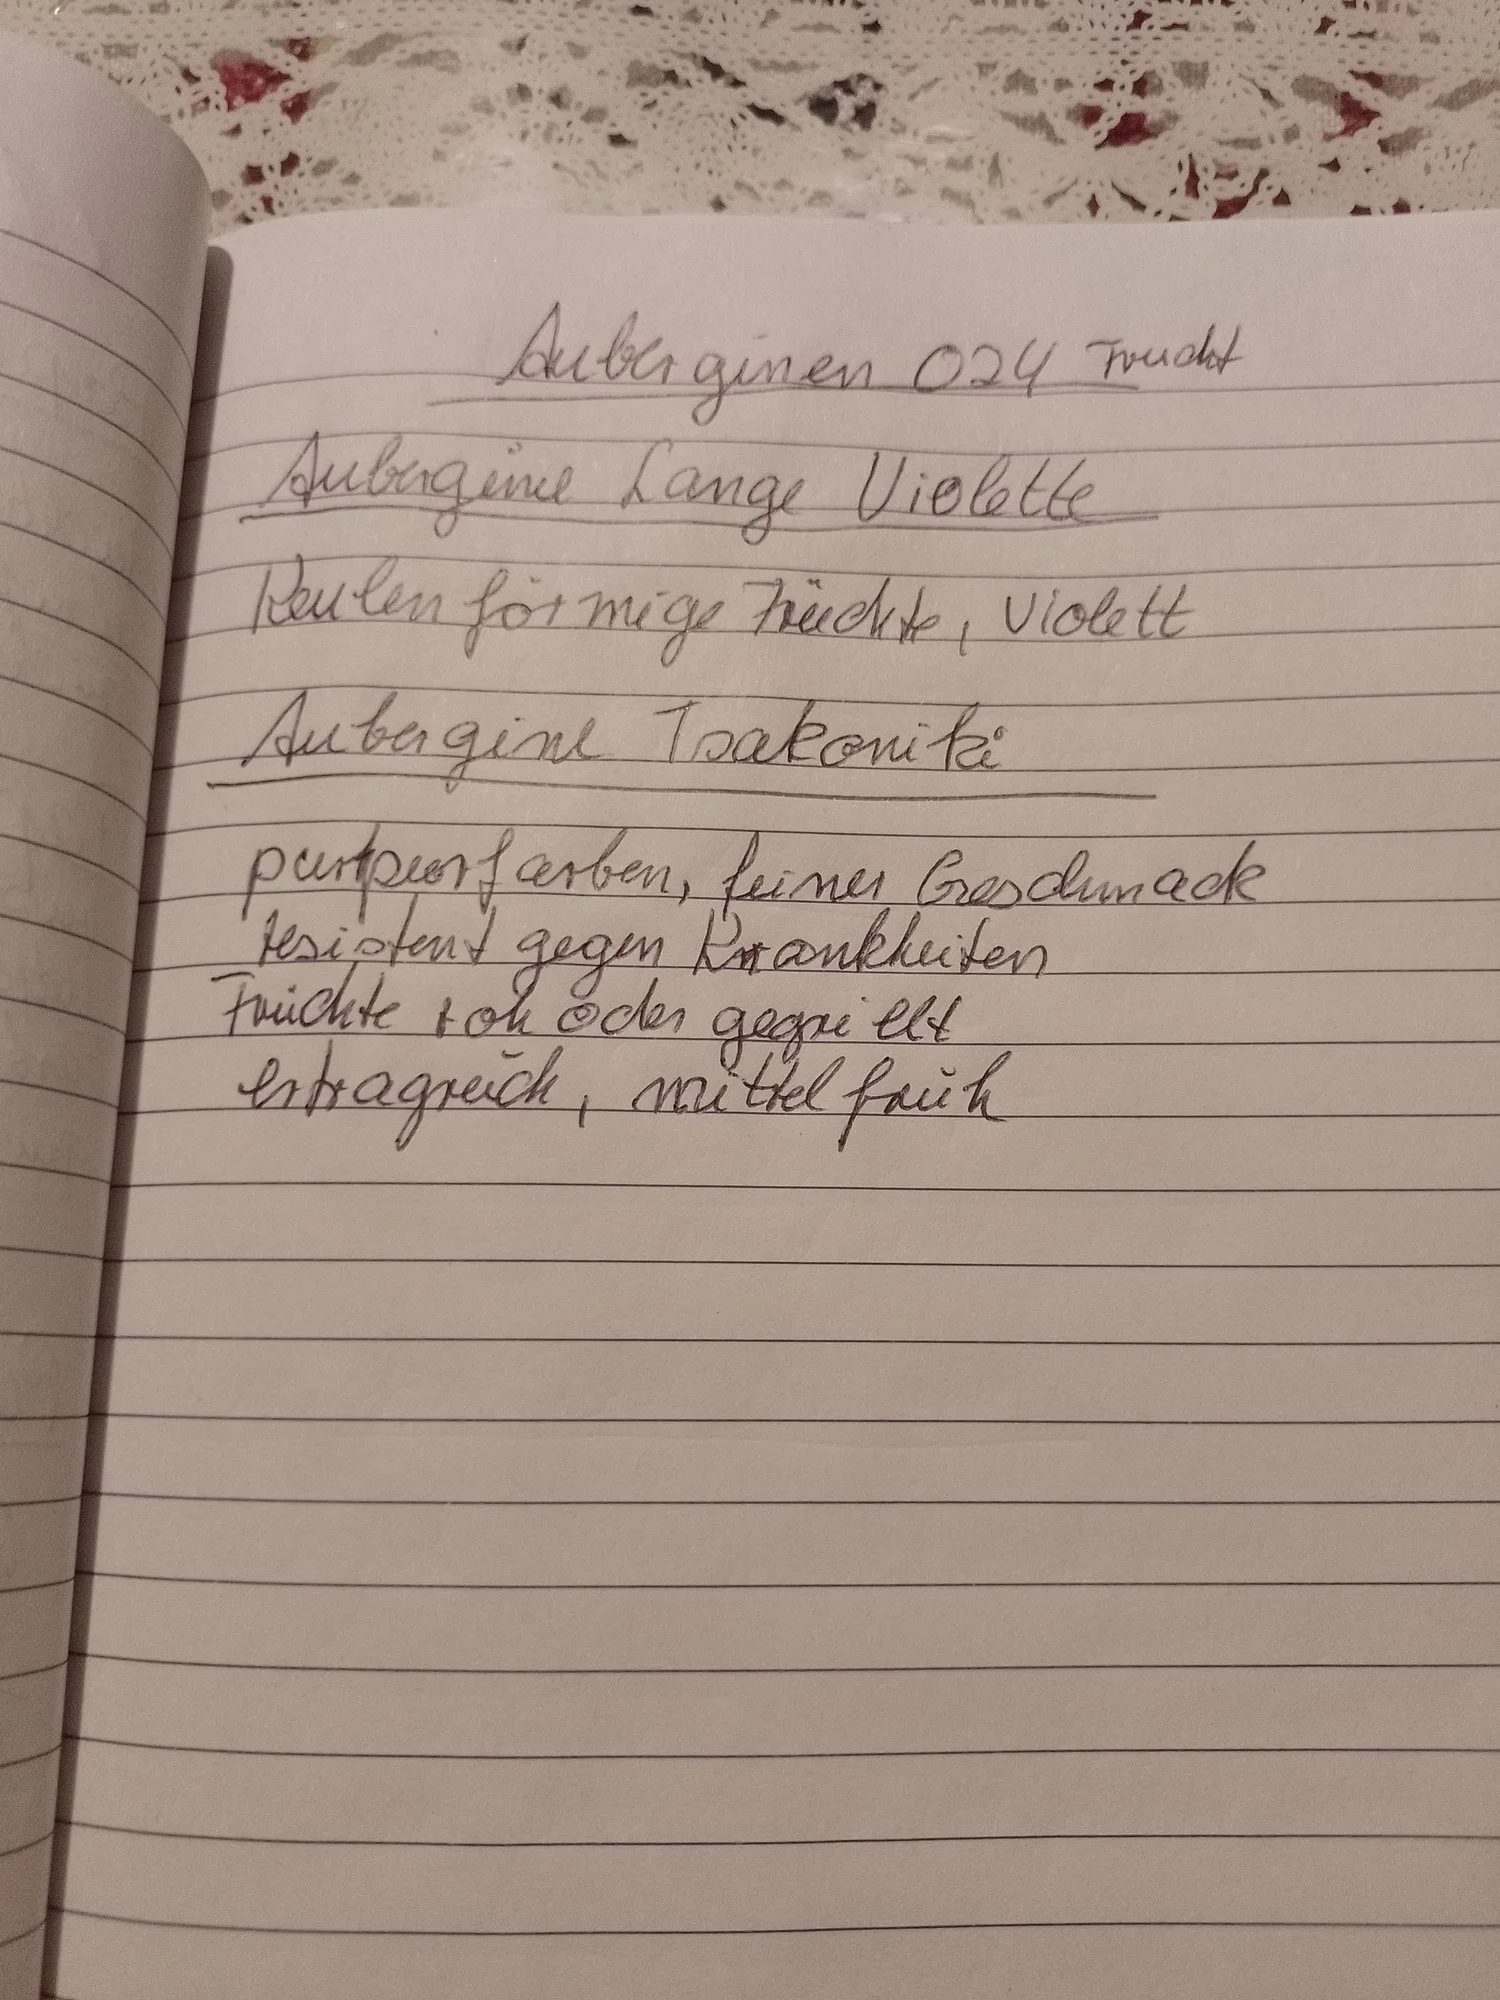 Auberginen 024 Frucht
Aubergine Lange Violette
Keulenförmige Früchte, Violett
Aubergine Tsakoniki
purpurfarben, feiner Geschmack
resistent gegen Krankheiten
Früchte roh oder gegrillt
ertragreich, mittelfrüh